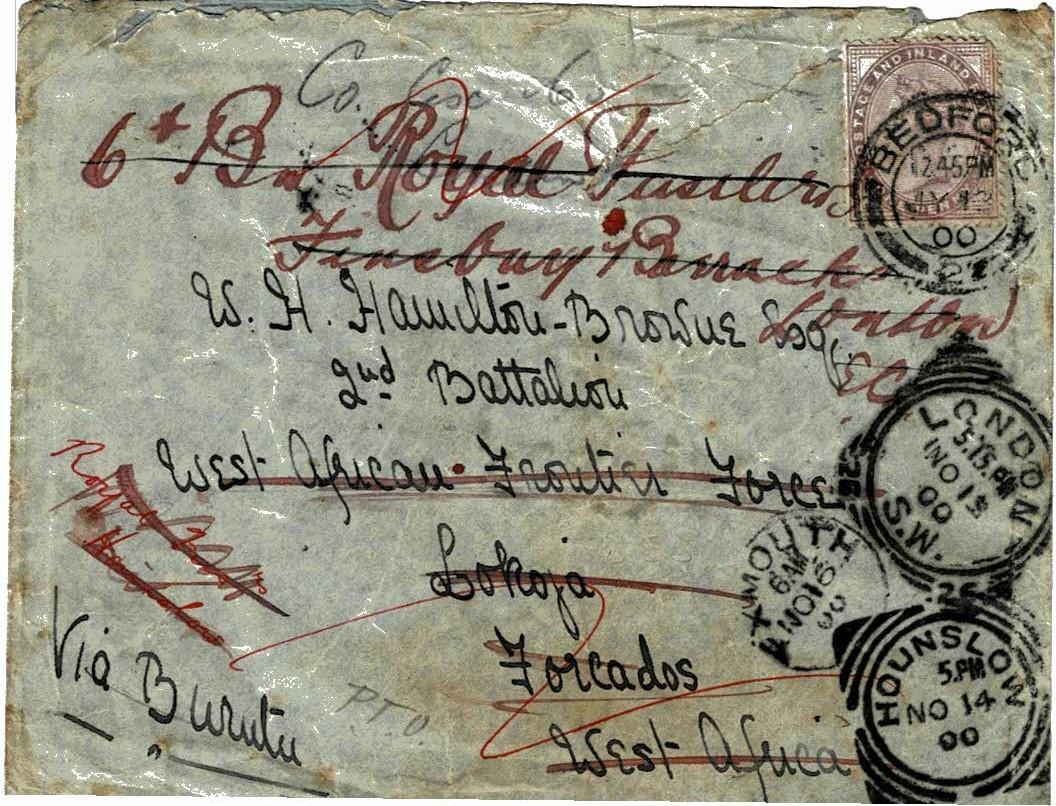 Co.
6th Bn Royal Fusiliers
Finsbury Barracks
London
EC
W. H. Hamilton-Browne Esq
2nd Battalion
West African Frontier Force
Lokoja
Forcados
West Africa
Via Burutu
P.T.O.
Royal
POSTAGE AND INLAND
BEDFORD
12.45PM
JY 13
00
LONDON
5.15.PM
NO 13
00
S.M.
YMOUTH
6 AM
NO 16
00
HOUNSLOW
5.PM
NO 14
00